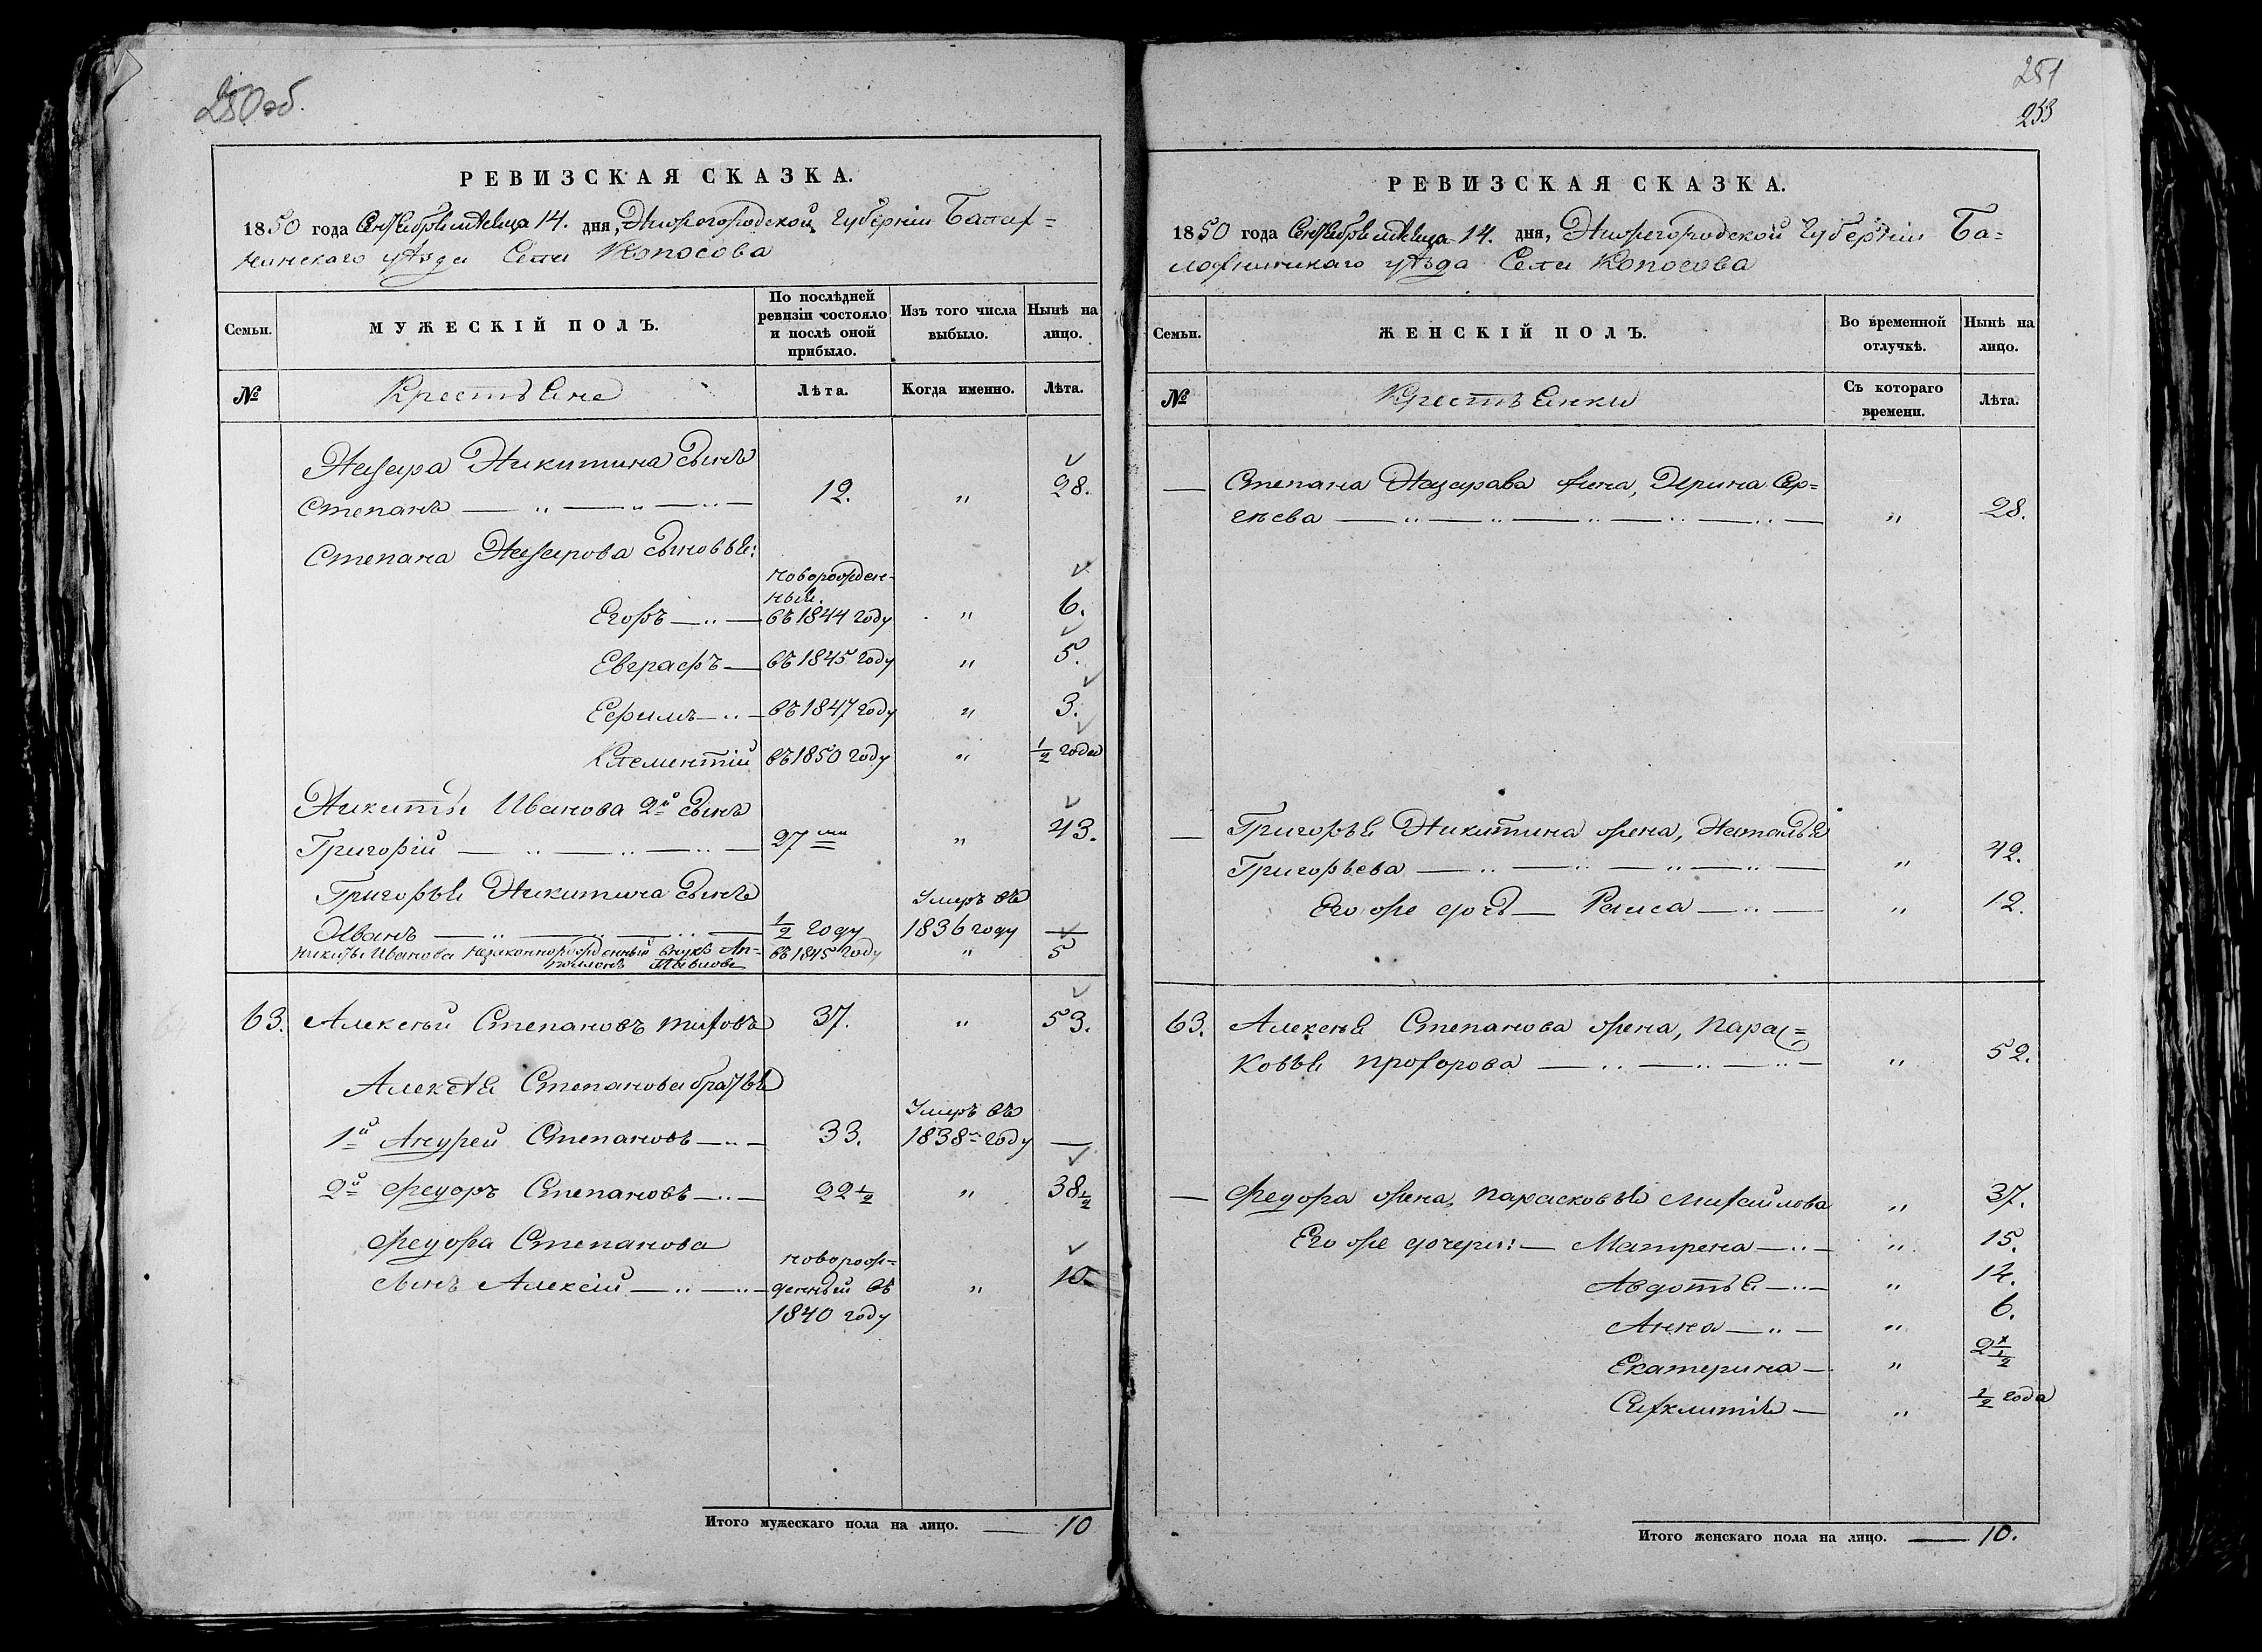 250 об.
РЕВИЗСКАЯ СКАЗКА.
1850 года Сентября месяца 14. дня, Нижегородской Губернiи Балах=
нинскаго уѣзда Села Копосова
Семьи.
МУЖЕСКIЙ ПОЛЪ.
По послѣдней ревизiи состояло и послѣ оной прибыло.
Изъ того числа выбыло.
Нынѣ на лицо.
№
Крестьяне
Лѣта.
Когда именно.
Лѣта.
Назара Никитина сынъ
Степанъ — „ — „ — „ — 12. „ 28.
Степана Назарова сыновья:
новорожден-
ныя.
Егоръ — „ — въ 1844 году „ 6.
Евграфъ — въ 1845 году „ 5.
Ефимъ — „ — въ 1847 году „ 3.
Клементiй въ 1850 году „ ½ года
Никиты Иванова 2й сынъ
Григорiй — „ — „ — „ — 27ми „ 43.
Григорья Никитина сынъ Умеръ въ
Иванъ — „ — „ — „ — ½ году 1836 году —
Никиты Иванова незаконнорожденный внукъ Ап- въ 1845 году „ 5
полонъ
63. Алексѣй Степановъ Титовъ 37. „ 53.
Алексѣя Степанова братья
Умеръ въ
1й Андрей Степановъ — „ — 33. 1838м году —
2й Федоръ Степановъ — „ — 22½ „ 38½
Федора Степанова
новорож=
сынъ Алексiй — „ — „ — денный въ „ 10.
1840 году
Итого мужескаго пола на лицо. — 10
251
253
РЕВИЗСКАЯ СКАЗКА.
1850 года Сентября месяца 14. дня, Нижегородской Губернiи Ба=
лахнинскаго уѣзда Села Копосова
Семьи.
ЖЕНСКIЙ ПОЛЪ.
Во временной отлучкѣ.
Нынѣ на лицо.
№
Крестьянки
Съ котораго времени.
Лѣта.
— Степана Назарова жена, Ирина Сер=
гѣева — „ — „ — „ — „ — „ — „ 28.
— Григорья Никитина жена, Наталья
Григорьева — „ — „ — „ — „ — „ 42.
Его же дочь — Раиса — „ — „ 12.
63. Алексѣя Степанова жена, Парас=
ковья Прохорова — „ — „ — „ — „ 52.
— Федора жена, Парасковья Михайлова „ 37.
Его же дочери: — Матрена — „ — „ 15.
Авдотья — „ — „ 14.
Анна — „ — „ 6.
Екатерина — „ 2½
Сихлитiя — „ ½ года
Итого женскаго пола на лицо. — 10.